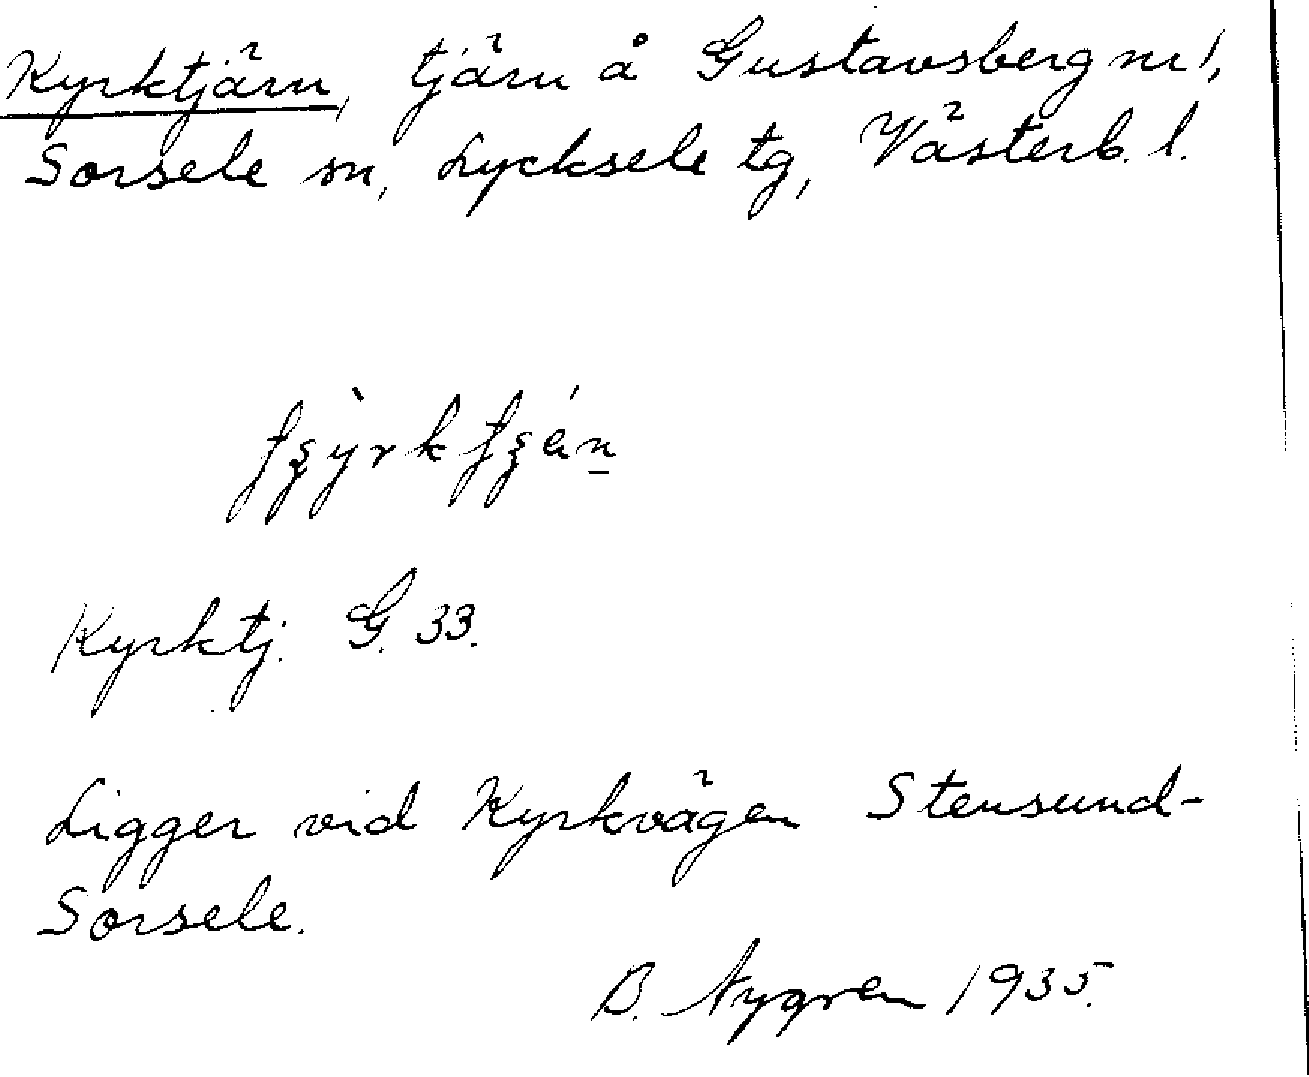 Kyrktjärn, tjärn å Gustavsberg nr 1,
Sorsele sn, Lycksele tg, Västerb. l.
Kyrktj. G. 33.
Ligger vid Kyrkvägen Stensund-
Sorsele.
B. Nygren 1935.